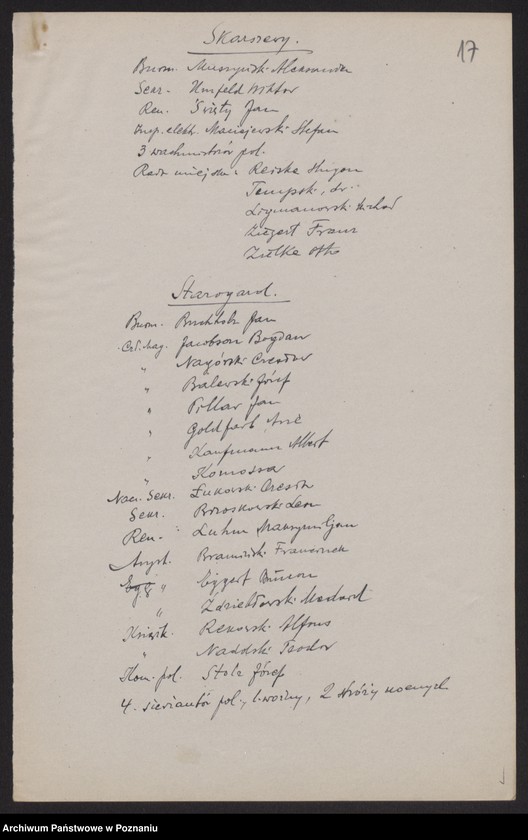 17
Skarszewy.
Burm. Muszyński Aleksander
Sekr. Umfeld Wiktor
Ren. Święty Jan
Insp. elektr. Maciejewski Stefan
3 wachmistrzów pol.
Rada miejska: Reiske Hugon
Tempski, dr.
Szymanowski
Ziegert Franz
Zielke Otto
Starogard.
Burm. Buchholz Jan
Czł. Mag. Jacobson Bogdan
" Nagórski Czesław
" Balewski Józef
" Pillar Jan
" Goldfarb
" Kaufmann Albert
" Komossa
Nacz. Sekr. Łukowski Czesław
Sekr. Brzoskowski Leon
Ren. Luhm Maksymiljan
Asyst. Bramiński Franciszek
" Eggert Bruno
" Zdziebłowski Medard
Książk. Rekowski Alfons
" Nadolski Teodor
Kom. pol. Stolz Józef
4. sierżantów pol., 1 woźny, 2 stróży nocnych
Archiwum Państwowe w Poznaniu